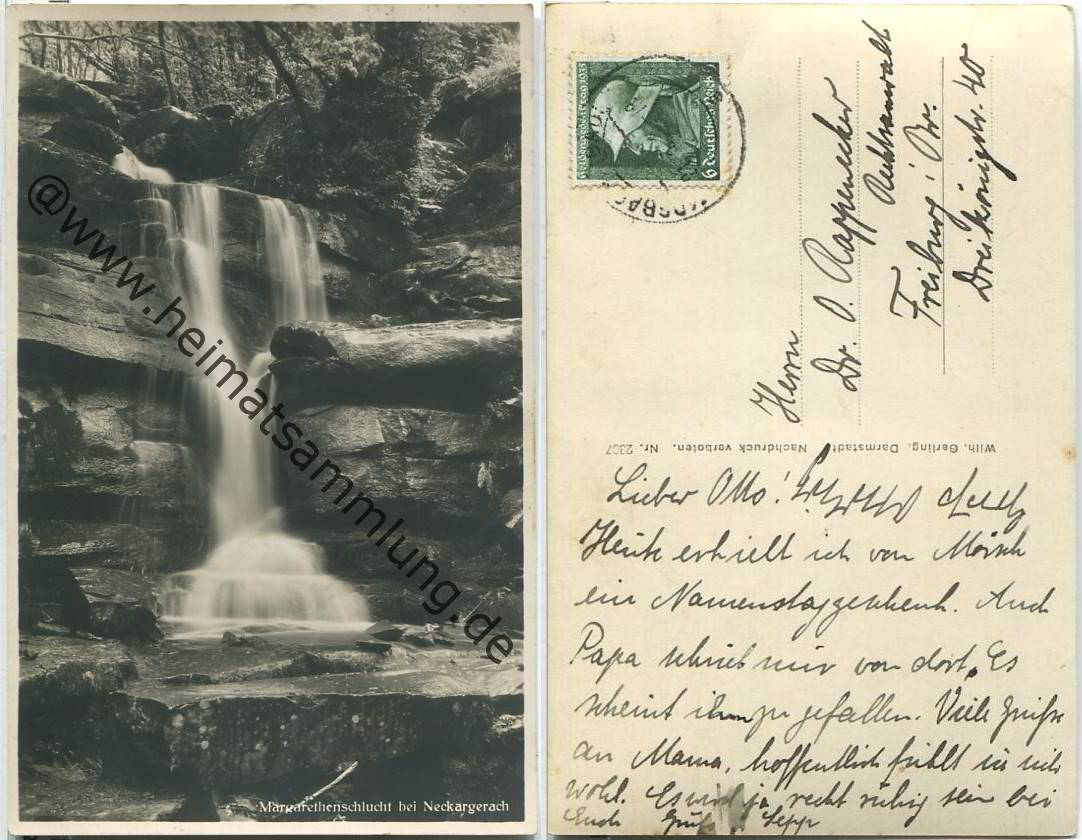 @www.heimatsammlung.de
Margarethenschlucht bei Neckargerach
Heldengedenktag 1935
6 Deutsches Reich
Herrn
Dr. O. Rappenecker
Rechtsanwalt
Freiburg i Br.
Dreikönigstr. 40
Wilh. Gerling, Darmstadt. Nachdruck verboten. Nr. 2307
Lieber Otto!
Heute erhielt ich von Mörsch
ein Namenstaggeschenk. Auch
Papa schrieb mir von dort. Es
scheint ihm zu gefallen. Viele Grüße
an Mama, hoffentlich fühlt sie sich
wohl. Es wird ja recht ruhig sein bei
Euch Gruß Sepp